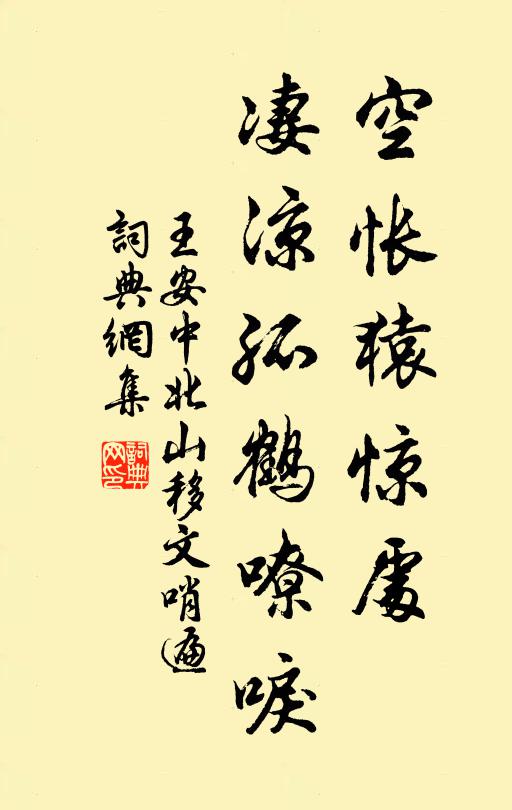 空帐猿惊處
凄凉孤鹤嘹唳
王安中北山移文哨遍
詞典網集
詞典
网印